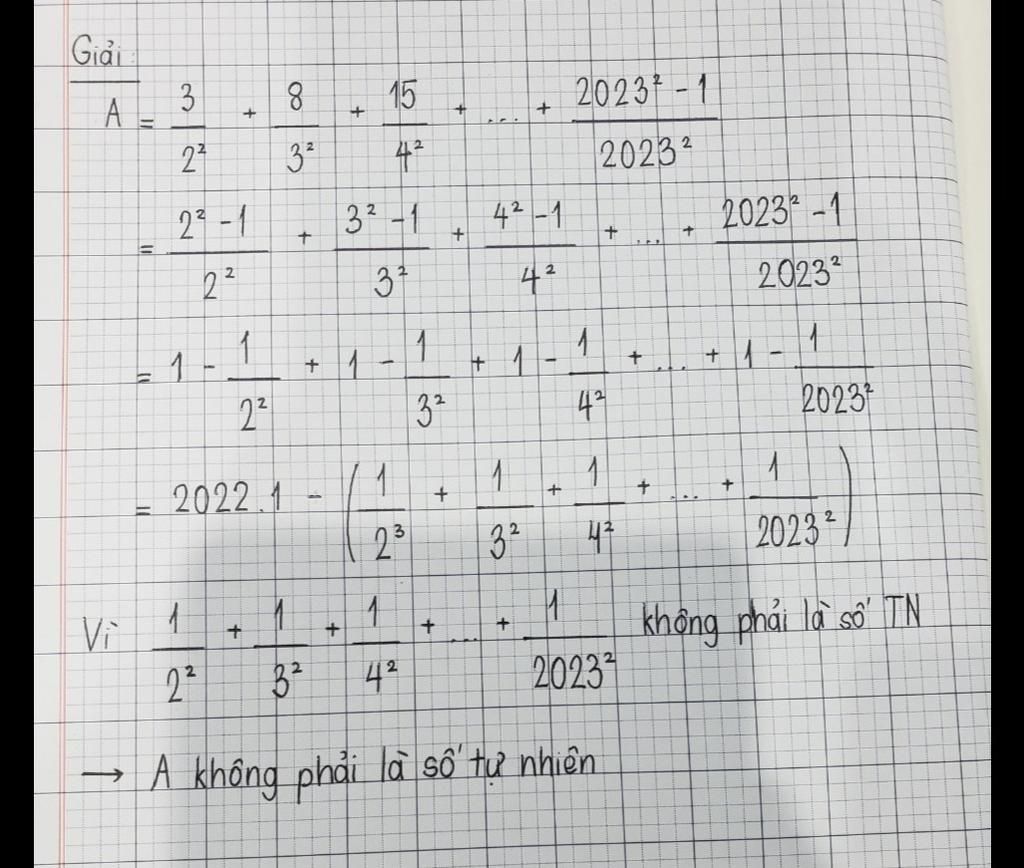 Giải:
A = 3/2² + 8/3² + 15/4² + ... + (2023² - 1)/2023²
= (2² - 1)/2² + (3² - 1)/3² + (4² - 1)/4² + ... + (2023² - 1)/2023²
= 1 - 1/2² + 1 - 1/3² + 1 - 1/4² + ... + 1 - 1/2023²
= 2022.1 - (1/2³ + 1/3² + 1/4² + ... + 1/2023²)
Vì 1/2² + 1/3² + 1/4² + ... + 1/2023² không phải là số TN
→ A không phải là số tự nhiên